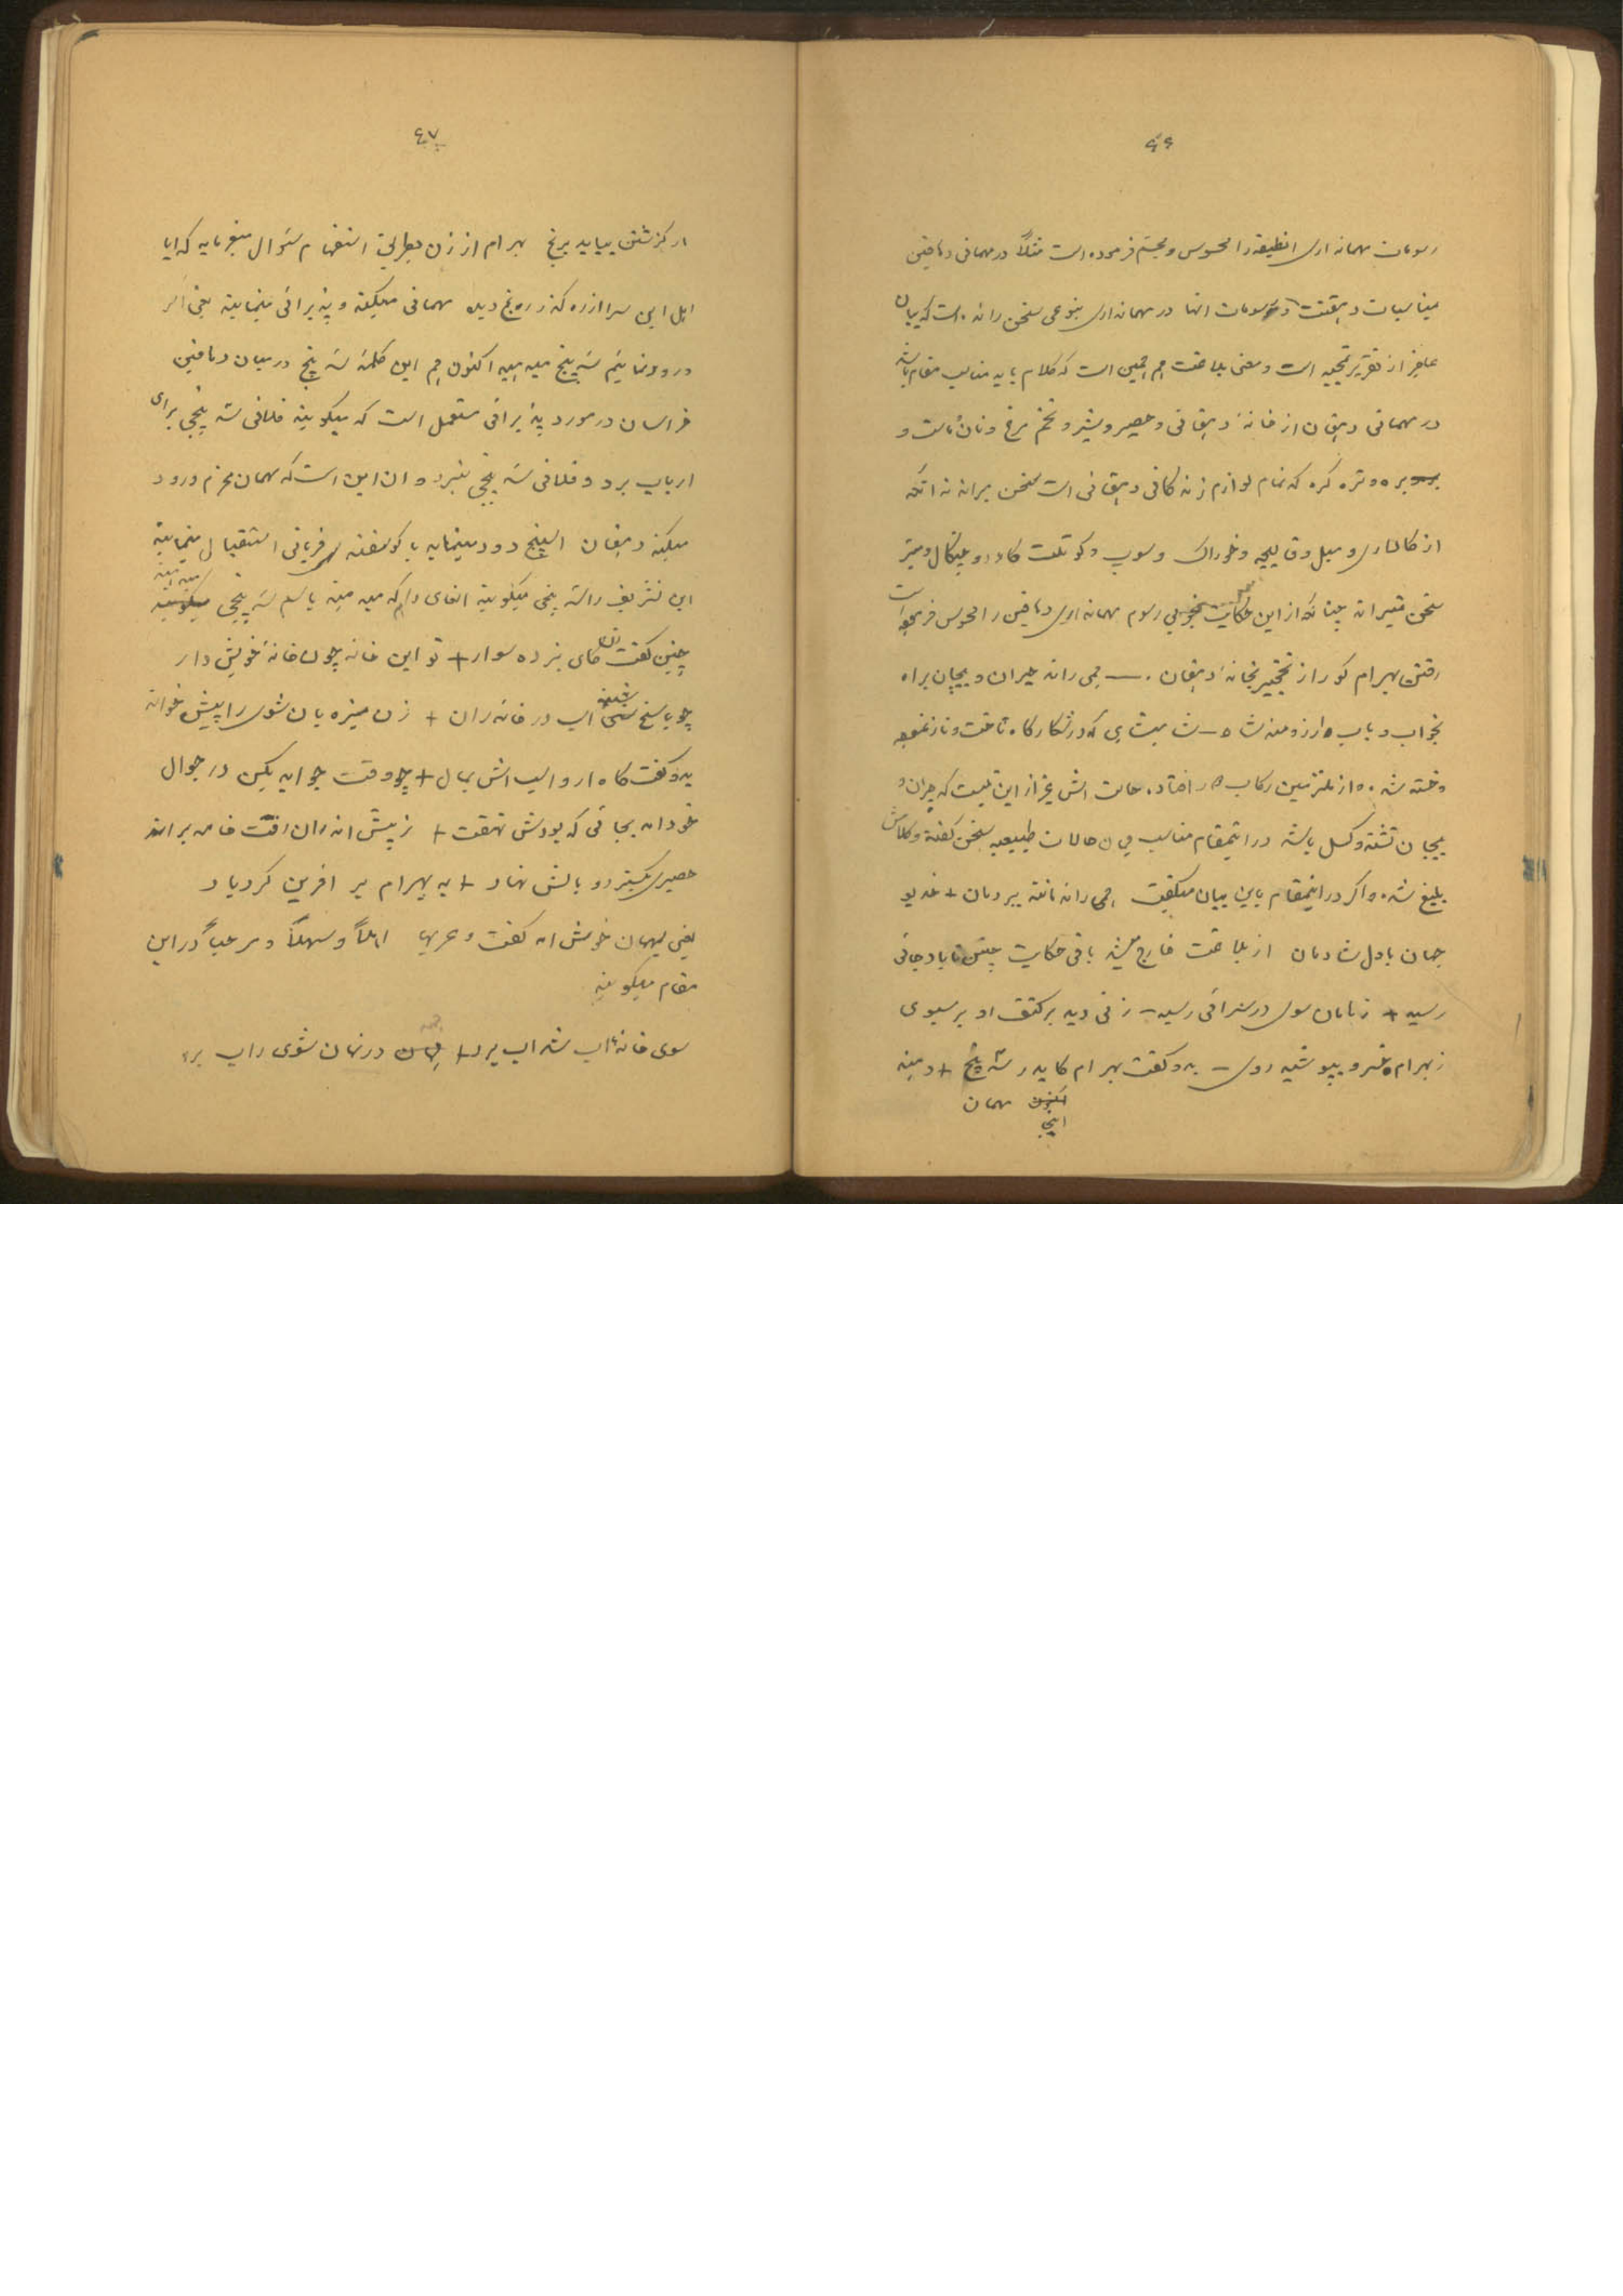 ٤٦
رسومات مهمانداری انطیقه را محسوس و مجسم فرموده است مثلاً در مهمانی دهاقین
مناسبات دهقنت و رسومات انها در مهمانداری بنوعی سخن رانده است که بیان
عاجز از تقریر تمجید است و معنی بلاغت هم همین است که کلام باید مناسب مقام باشد
در مهمانی دهقان از خانهٔ دهقانی و حصیر و شیر و تخم مرغ و نان و ماست و
بره و تره کره که تمام لوازم زندکانی دهقانی است سخن براند نه انکه
از کالسکه و مبل و قالیچه و خوراک و سوپ و کوتلت کارد و چنکال و میز
سخن میراند چنانکه از این حکایت بخوبی رسوم مهمانداری دهاقین را محسوس فرموده است
رفتن بهرام کور از نخجیر بخانهٔ دهقان . ــ همی راند حیران و پیچان براه
بخواب و باب ارزومند شاه ــ شاهنشاهی که در شکارکاه تاخت و تاز نموده
و خسته شده و از ملتزمین رکاب دور افتاده حالت اش غیر از این نیست که حیران و
پیچان تشنه و کسل باشد در اینمقام مناسب همان حالات طبیعیه سخن کفته و کلامش
بلیغ شده و اکر در اینمقام باین بیان میکفت همی راند مانند ببر دمان + خدیو
جهان با دل شادمان از بلاغت خارج میشد باقی حکایت چنین تا باد جائی
رسید + زهامون سوی در سرائی رسید ــ زنی دید بر کتف او بر سبوی
ز بهرام خسرو بپوشید روی ــ بدو کفت بهرام کاید ر سه پنج + دهید
اینجا مهمان
٤٧
ار کزشتن بباید برنج بهرام از زن بطریق استفهام سئوال میفرماید که ایا
اهل این سرا از ره کذر ره رنج دیده مهمانی میکیند و پذیرائی مینمایند یعنی اکر
ورود نمائیم سه پنج میدهید اکنون هم این کلمهٔ سه پنج در میان دهاقین
خراسان در مورد پذیرائی مستعمل است که میکویند فلانی سه پنجی برای
ارباب برد و فلانی سه پنجی نبرد و ان این است که مهمان محترم ورود
میکند دهقان اسپنج دود مینماید یا کوسفند قربانی استقبال مینمایند
این تشریف را سه پنجی میکویند انعامی را هم که میدهند باسم سه پنجی میدهند
چنین کفت زن کای نبرده سوار + تو این خانه چون خانهٔ خویش دار
چو پاسخ شنید اسب در خانه راند + زن میزبان شوی را پیش خواند
بدو کفت کاه ار و اسب اش بمال + چو وقت جو اید بکن در جوال
خود امد بجائی که بودش نهفت + ز پیش اندران رفت خانه برفت
حصیری بکسترد و بالش نهاد + به بهرام بر افرین کرد یاد
یعنی بمهمان خوش امد کفت و عربها اهلاً و سهلاً و مرحباً در این
مقام میکویند
سوی خانهٔ اب شد اب برد + همه در نهان شوی را بر